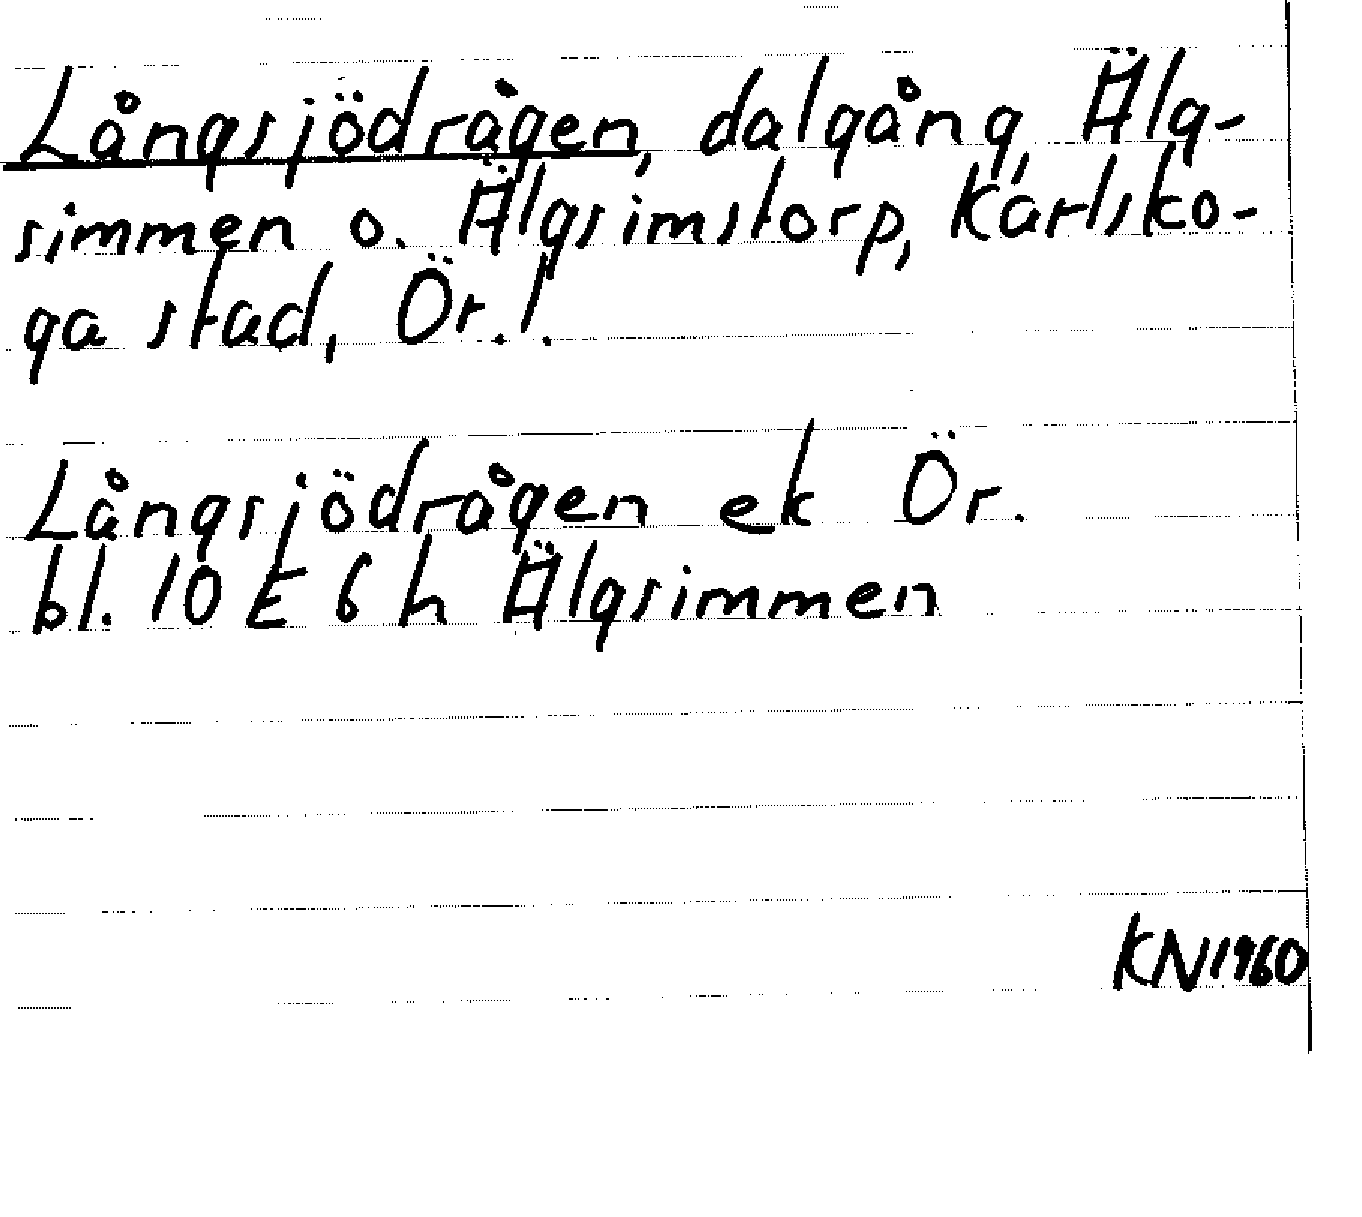 Långsjödrågen, dalgång, Älg-
simmen o. Älgsimstorp, Karlsko-
ga stad, Ör. l.
Långsjödrågen ek Ör.
bl. 10 E 6 h Älgsimmen
KN 1960